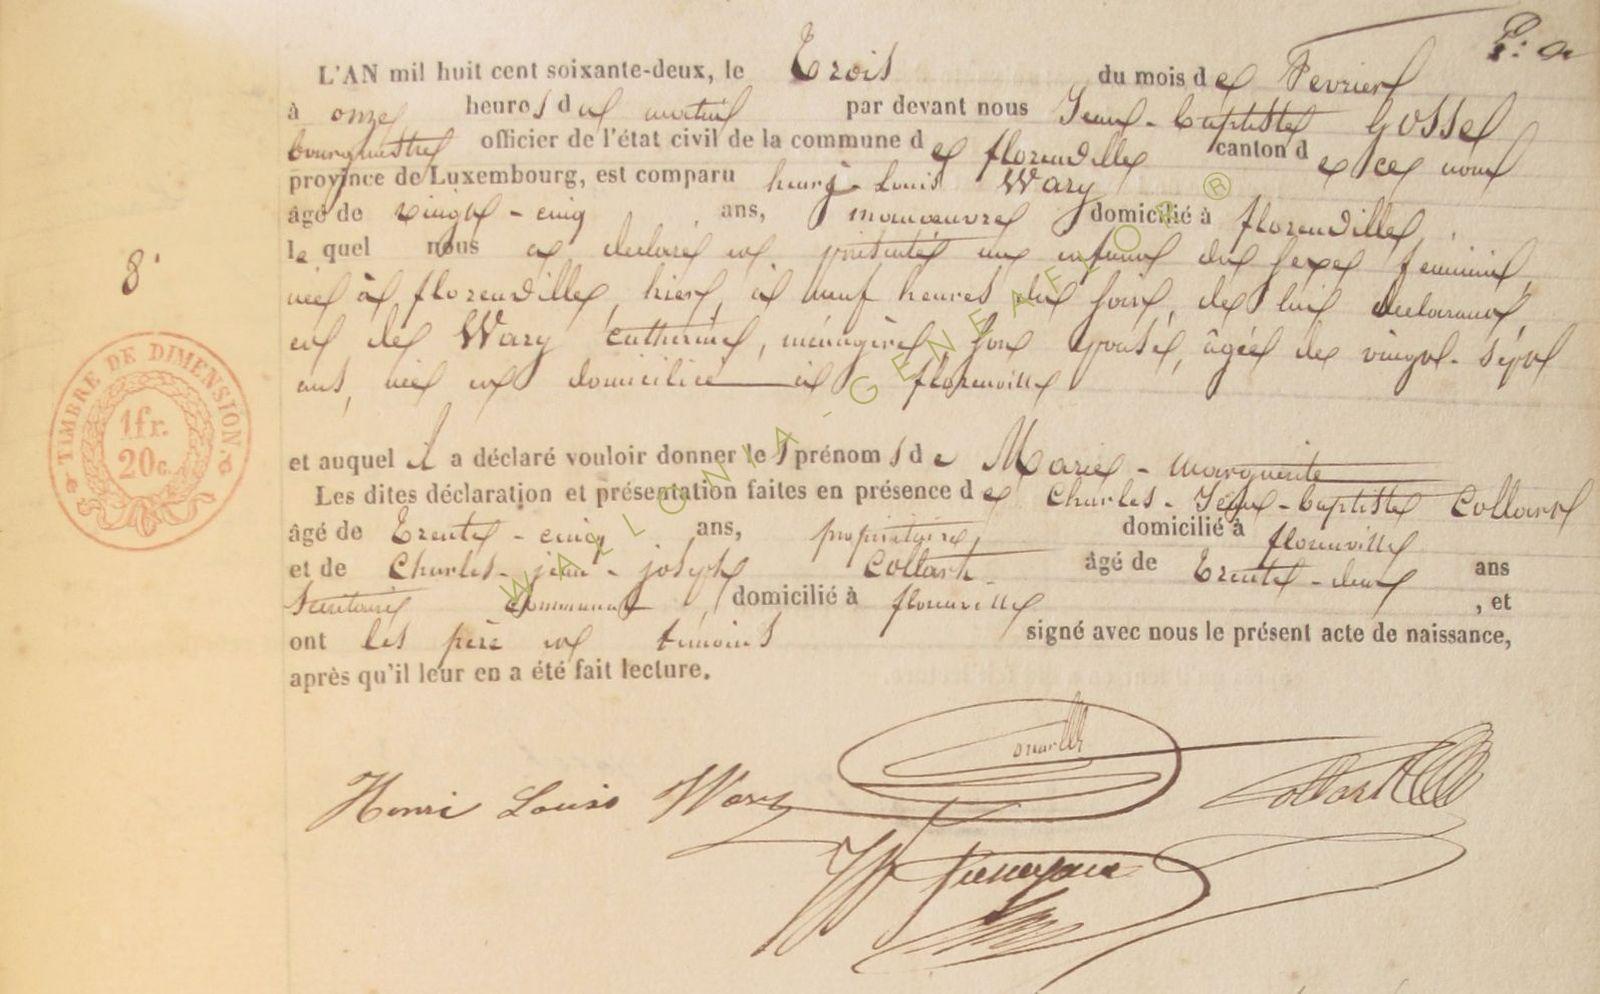 L'AN mil huit cent soixante-deux, le Trois du mois de Fevrier
à onze heures du matin par devant nous Jean-Baptiste Gosse
bourgmestre officier de l'état civil de la commune de florenville canton de ce nom
province de Luxembourg, est comparu henry Louis Wary
âgé de vingt-cinq ans, manoeuvre domicilié à florenville,
le quel nous a declaré et présenté une enfant du sexe feminin,
née à florenville, hier, à neuf heures du soir, de lui declarant,
et de Wary Catherine, ménagère, son épouse, âgée de vingt-sept
ans, née et domiciliée à florenville
8
TIMBRE DE DIMENSION.
1fr.
20c.
et auquel il a déclaré vouloir donner les prénoms de Marie-Marguerite
Les dites déclaration et présentation faites en présence de Charles-Jean-baptiste Collart
âgé de Trente-cinq ans, propriétaire, domicilié à florenville
et de Charles-jean-joseph Collart âgé de Trente-deux ans
Secrétaire communal, domicilié à florenville, et
ont les père et témoins signé avec nous le présent acte de naissance,
après qu'il leur en a été fait lecture.
Henri Louis Wary Collart
WALLONIA-GENEAFLOR ®